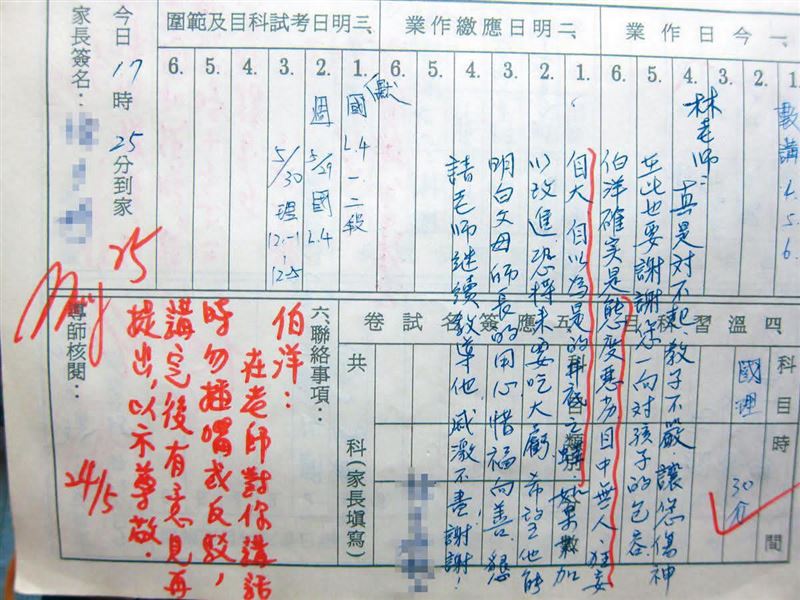 一今日作業
1.
2.
3.
4.
5.
6.
數講4.5.6.
二明日應繳作業
1.
2.
3.
4.
5.
6.
三明日考試科目及範圍
1.
2.
3.
4.
5.
6.
國L4一、二段
週5/29國L4
5/30理12-1~12-5
林老師：
真是對不起教子不嚴，讓您傷神
在此也要謝謝您一向對孩子的包容
伯洋確實是態度惡劣目中無人、狂妄
自大、自以為是的井底之蛙，如果不加
以改進，恐將來要吃大虧，希望他能
明白父母師長的用心，惜福向善，懇
請老師繼續教導他，感激不盡，謝謝！
今日17時25分到家
家長簽名：
四溫習科目
科目
時間
國理
30分
五應簽名試卷
科目
類別
張數
共 科(家長填寫)
六聯絡事項：
伯洋：
在老師對你講話
時勿插嘴或反駁，
講完後有意見再
提出，以示尊敬.
導師核閱：
25
24/5